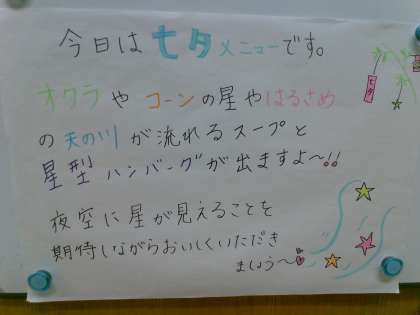 今日は七夕メニューです。
オクラやコーンの星やはるさめ
の天の川が流れるスープと
星型ハンバーグが出ますよ～!!
夜空に星が見えることを
期待しながらおいしくいただき
ましょう～
七夕